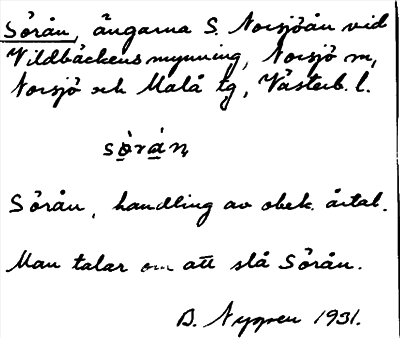 Sörån, ängarna S. Norsjöån vid
Vildbäckens mynning, Norsjö sn,
Norsjö och Malå tg, Västerb. l.
sö̀rán,
Sörån, handling av obek. årtal.
Man talar om att slå Sörån.
B. Nygren 1931.